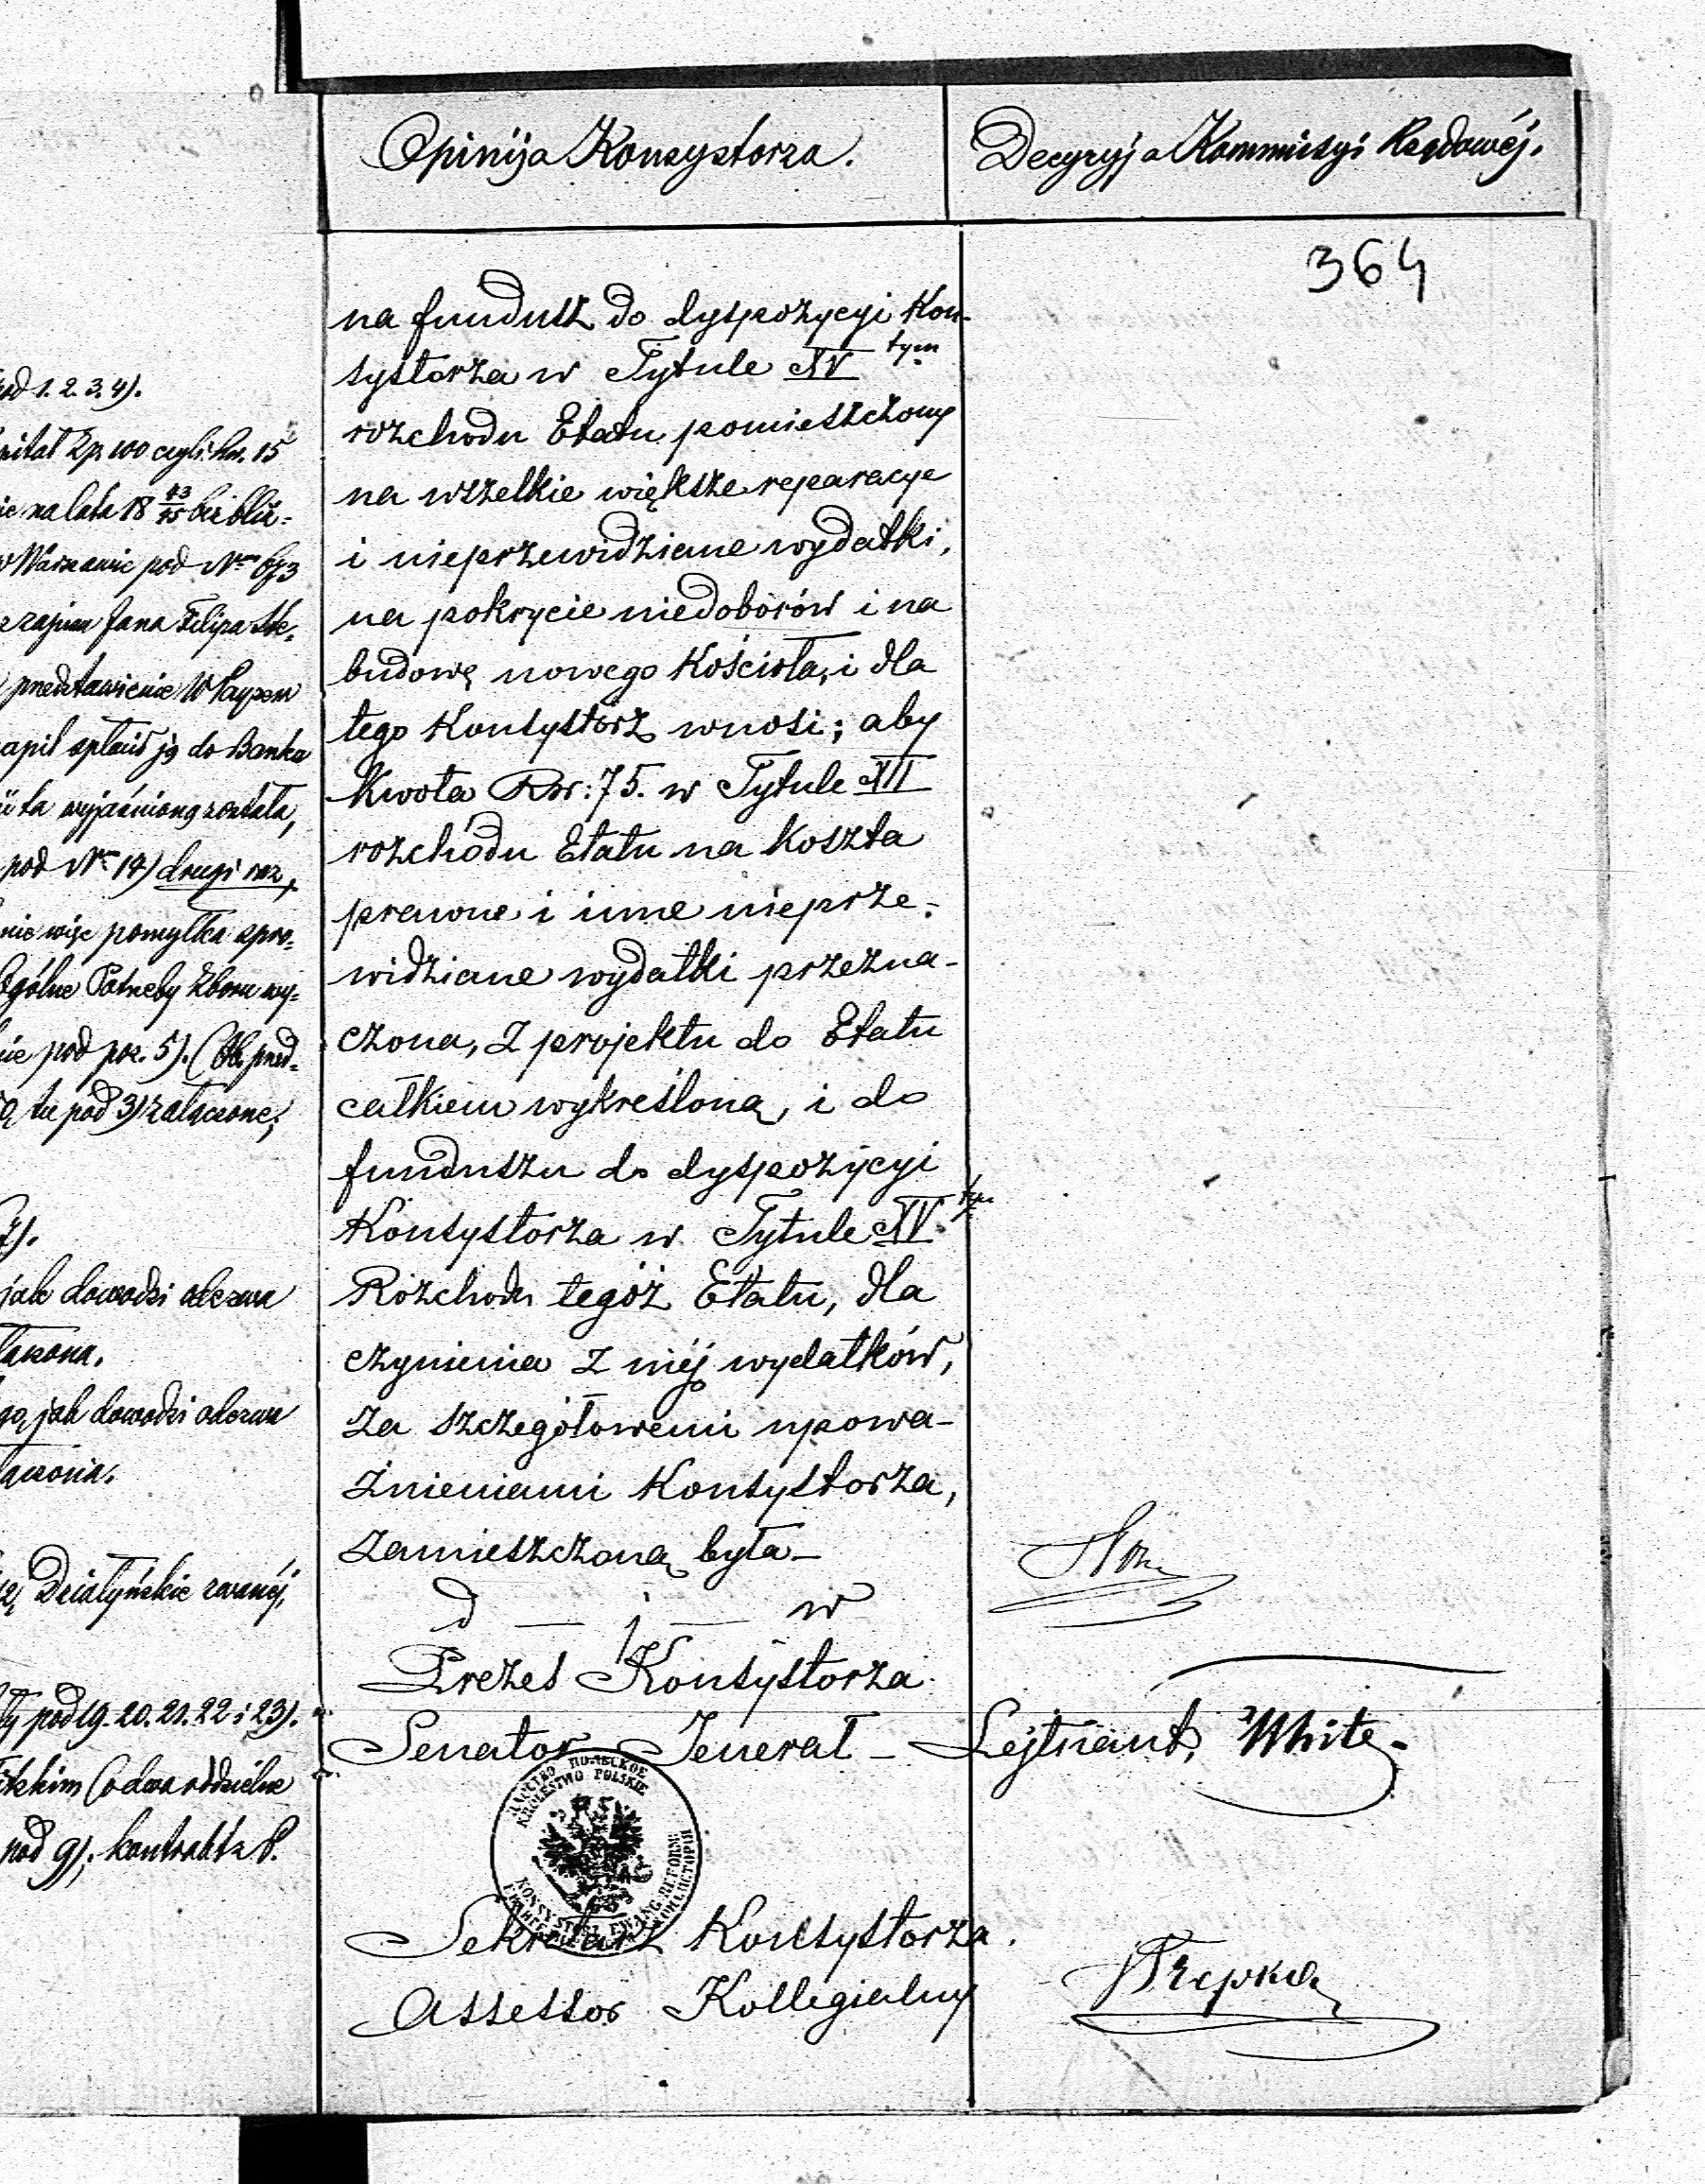 Opinija Konsystorza.
Decyzyja Kommissyi Rządowéj.
364
na fundusz do dyspozycyi Kon-
systorza w Tytule XV tym
rozchodu Etatu pomieszczony
na wszelkie większe reparacye
i nieprzewidziane wydatki,
na pokrycie niedoborów i na
budowę nowego Kościoła, i dla
tego Konsystorz wnosi; aby
Kwota Rsr: 75. w Tytule XII
rozchodu Etatu na Koszta
prawne i inne nieprze-
widziane wydatki przezna-
czona, z projektu do Etatu
całkiem wykreśloną, i do
funduszu do dyspozycyi
Konsystorza w Tytule XV tym
Rozchodu tegóż Etatu, dla
czynienia z niéj wydatków,
za szczegółowemi upowa-
żnieniami Konsystorza,
zamieszczoną była —
d — j — w
Prezes Konsystorza
Senator Jenerał - Lejtnant, White
KRÓLESTWO POLSKIE
KONSYSTORZ EWANG. REFORM
Sekretarz Konsystorza.
Assessor Kollegialny
pod 1. 2. 3. 4).
Zp. 100 czyli Rsr. 15
na lata 18 43/45
w Warszawie pod Nrm 673
Jana Filipa
przedstawienie W
spłacił ją do Banku
ta wyjaśnioną została,
pod Nr 14) drugi raz,
więc pomyłka spro-
Ogólne Potrzeby Zboru wy-
pod poz. 5).
tu pod 3) załączone;
7).
jak dowodzi odezwa
jak dowodzi odezwa
Działyńskie zwanéj,
pod 19. 20. 21. 22 i 23).
oddzielne
pod 9). kontrakt z P.